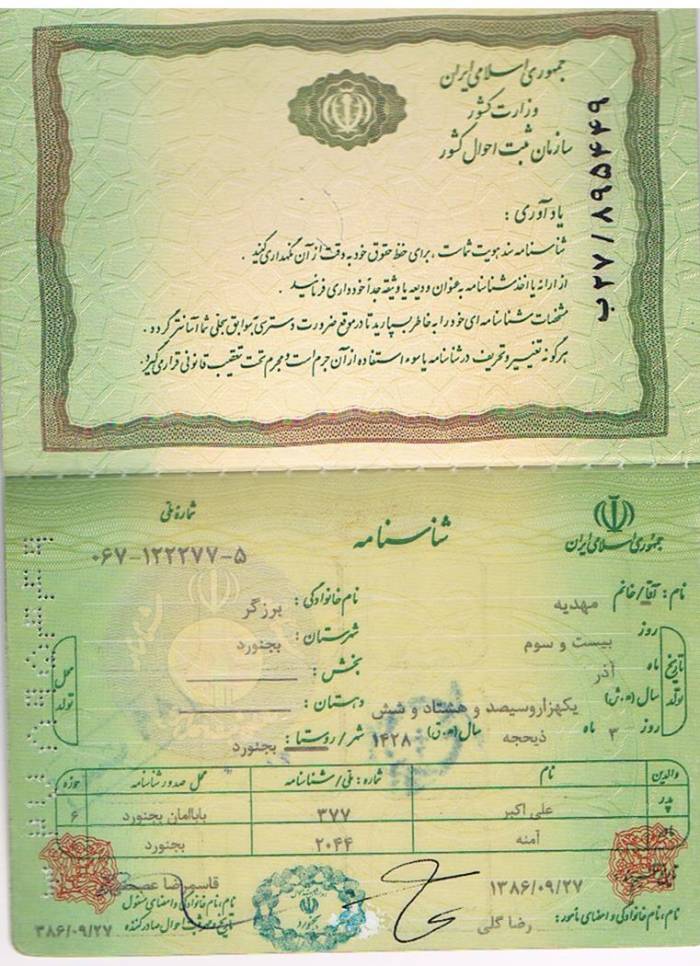 جمهوری اسلامی ایران
وزارت کشور
سازمان ثبت احوال کشور
ب۲۷/۸۹۵۴۴۹
یادآوری :
شناسنامه سند هویت شماست ، برای حفظ حقوق خود به دقت از آن نگهداری کنید .
از ارائه یا اخذ شناسنامه به عنوان ودیعه یا وثیقه جداً خودداری فرمائید .
مشخصات شناسنامه ای خود را به خاطر بسپارید تا در موقع ضرورت دسترسی به سوابق سجلی شما آسانتر گردد .
هر گونه تغییر و تحریف در شناسنامه یا سوء استفاده از آن جرم است و مجرم تحت تعقیب قانونی قرار می گیرد.
جمهوری اسلامی ایران
شناسنامه
شماره ملی
۰۶۷-۱۲۲۲۷۷-۵
نام : آقا/خانم مهدیه
نام خانوادگی : برزگر
تاریخ تولد
روز بیست و سوم
ماه آذر
سال (ه.ش) یکهزاروسیصد و هشتاد و شش
روز ۳ ماه ذیحجه سال (ه.ق) ۱۴۲۸
محل تولد
شهرستان : بجنورد
بخش :
دهستان :
شهر/روستا : بجنورد
والدین نام شماره : ملی/شناسنامه محل صدور شناسنامه حوزه
پدر علی اکبر ۳۷۷ باباامان بجنورد ۶
آمنه ۲۰۴۴ بجنورد
۱۳۸۶/۰۹/۲۷
نام، نام خانوادگی و امضای مأمور : رضا گلی
بجنورد
قاسمرضا
نام، نام خانوادگی و امضای مسئول
۳۸۶/۰۹/۲۷